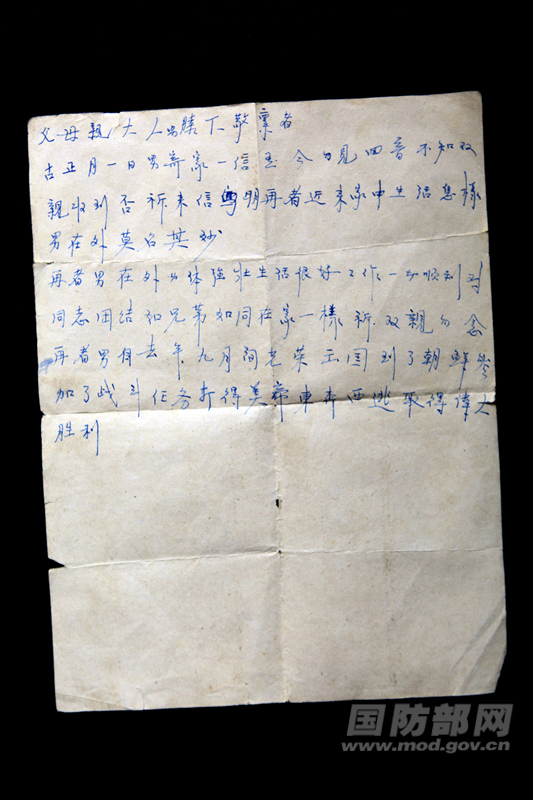 父母親大人膝下敬禀者
古正月一日男寄家一信至今勺見回音不知双
親收到否祈来信明再者近来家中生活怎樣
男在外莫名其妙
再者男在外身体強壮生活很好工作一切順利对
同志团结如兄弟如同在家一樣祈双親勿念
再者男自去年九月间光荣出国到了朝鮮参
加了战斗任务打得美帝東奔西逃取得偉大
胜利
国防部网
www.mod.gov.cn